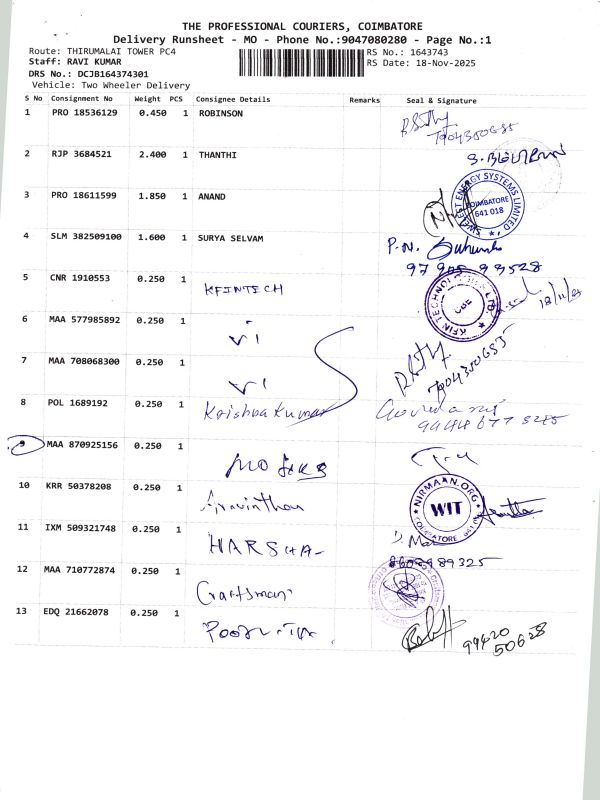 THE PROFESSIONAL COURIERS, COIMBATORE
Delivery Runsheet - MO - Phone No.:9047080280 - Page No.:1
Route: THIRUMALAI TOWER PC4
RS No.: 1643743
Staff: RAVI KUMAR
RS Date: 18-Nov-2025
DRS No.: DCJB164374301
Vehicle: Two Wheeler Delivery
S No Consignment No Weight PCS Consignee Details Remarks Seal & Signature
1 PRO 18536129 0.450 1 ROBINSON
7904350685
2 RJP 3684521 2.400 1 THANTHI
3 PRO 18611599 1.850 1 ANAND
ENERGY SYSTEMS LIMITED
COIMBATORE
641 018
4 SLM 382509100 1.600 1 SURYA SELVAM P.N.
5 CNR 1910553 0.250 1 KFINTECH
KFIN TECHNOLOGIES LTD.
CBE
18/11/25
6 MAA 577985892 0.250 1 Vi
7 MAA 708068300 0.250 1 Vi
7904350685
8 POL 1689192 0.250 1 Krishna Kumar
9 MAA 870925156 0.250 1
10 KRR 50378208 0.250 1 Aravinthan
NIRMAAN.ORG
WIT
COIMBATORE
11 IXM 509321748 0.250 1 HARSHA
12 MAA 710772874 0.250 1 Craftsman
13 EDQ 21662078 0.250 1
99420
50628